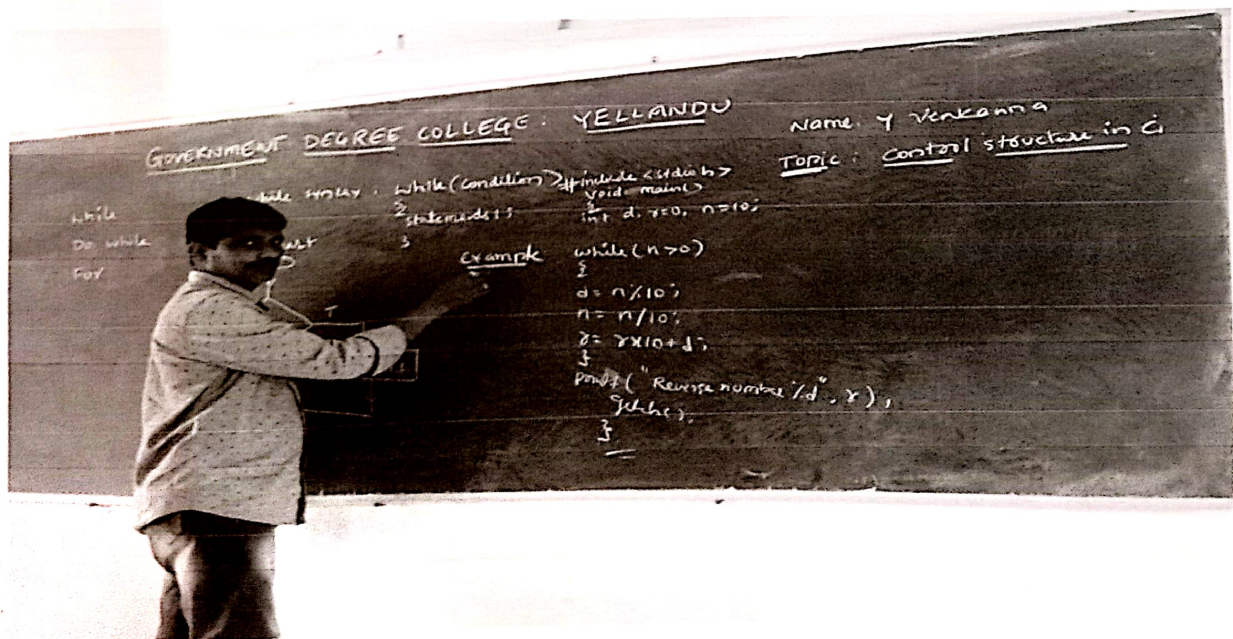 GOVERNMENT DEGREE COLLEGE : YELLANDU
Name: Y Venkanna
Topic : Control structure in C
while
Do while
For
syntax : while(condition)
{
statements;
}
#include <stdio.h>
void main()
{
int d, r=0, n=10;
Example
while(n>0)
{
d= n%10;
n= n/10;
r= r*10+d;
}
printf("Reverse number %d", r);
getch();
}
T